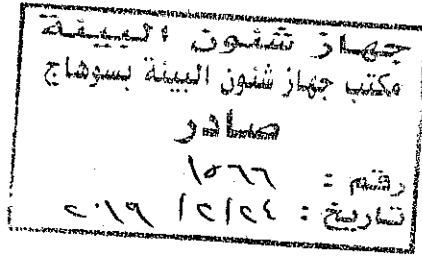 جهاز شئون البيئة
مكتب جهاز شئون البيئة بسوهاج
صادر
رقم : ١٥٦٦
تاريخ : ٢٤/٢/٢٠١٩